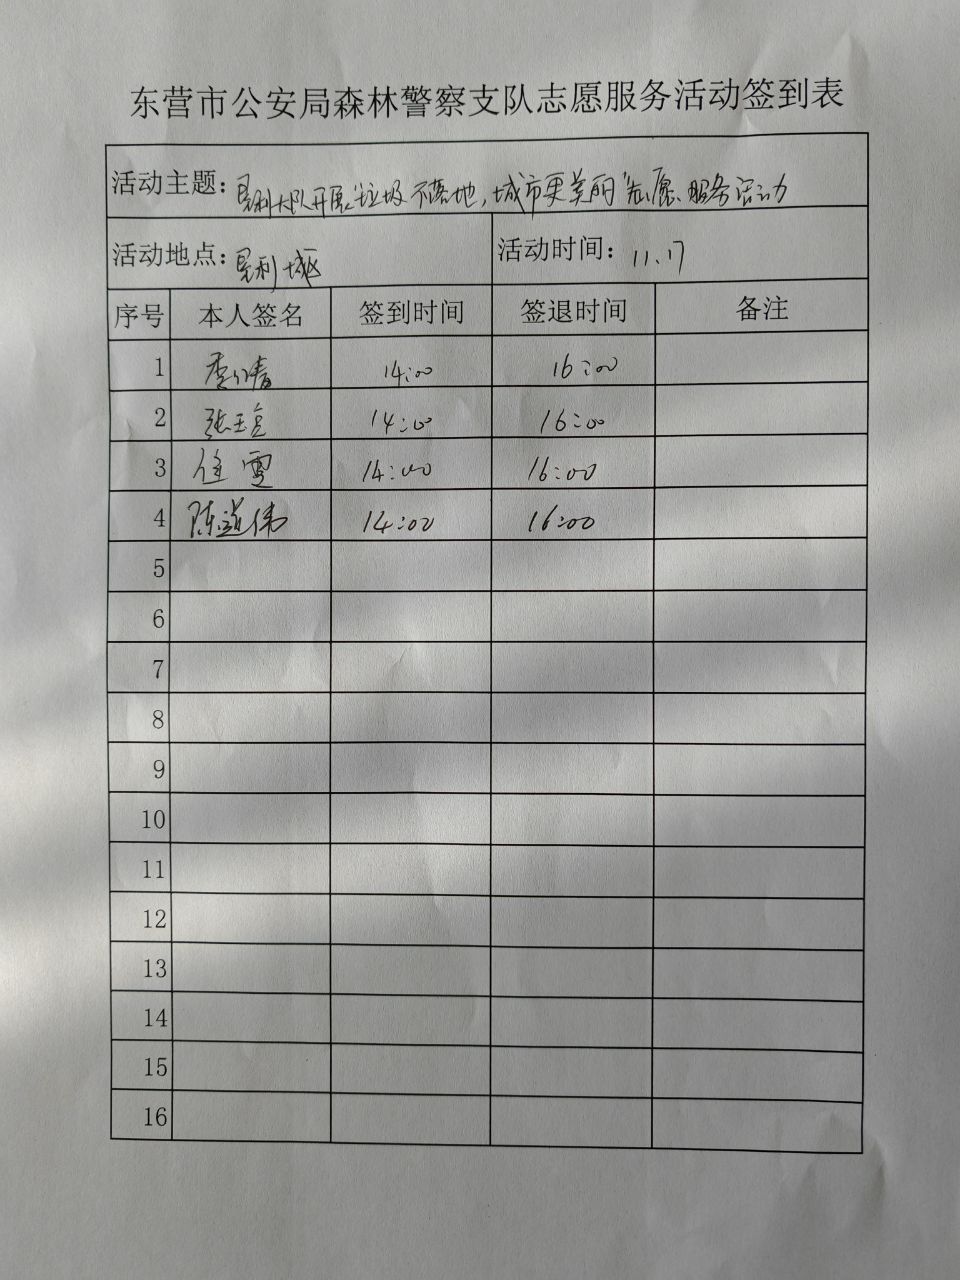 东营市公安局森林警察支队志愿服务活动签到表
活动主题：垦利大队开展"垃圾不落地,城市更美丽"志愿服务活动
活动地点：垦利城区 活动时间：11.17
序号 本人签名 签到时间 签退时间 备注
1 14:00 16:00
2 张玉 14:00 16:00
3 徐雪 14:00 16:00
4 陈道伟 14:00 16:00
5
6
7
8
9
10
11
12
13
14
15
16